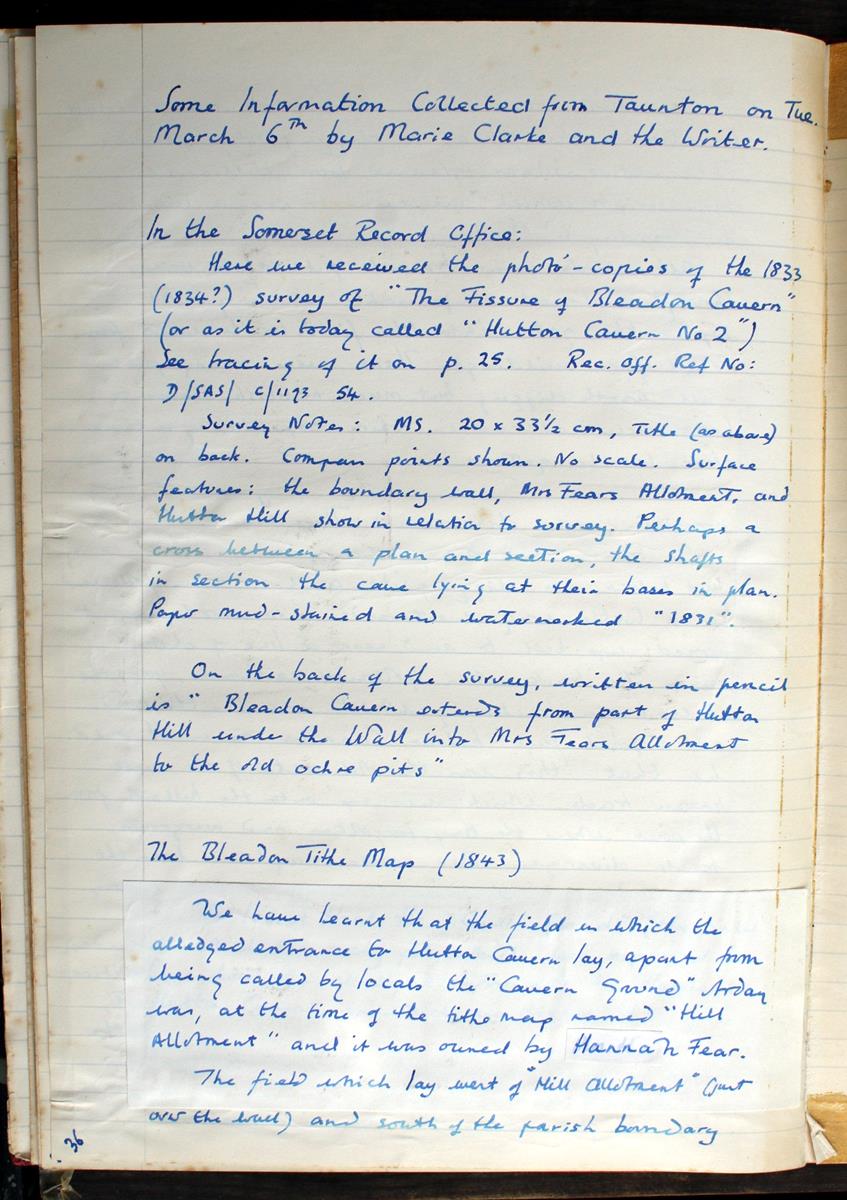 Some Information Collected from Taunton on Tue.
March 6th by Marie Clarke and the Writer.
In the Somerset Record Office:
Here we received the photo-copies of the 1833
(1834?) survey of "The Fissure of Bleadon Cavern"
(or as it is today called "Hutton Cavern No 2")
See tracing of it on p. 25. Rec. Off. Ref No:
D/SAS/ C/1193 54.
Survey Notes: MS. 20 x 33½ cm, Title (as above)
on back. Compass points shown. No scale. Surface
features: the boundary wall, Mrs Fears Allotment, and
Hutton Hill show in relation to survey. Perhaps a
cross between a plan and section, the shafts
in section the cave lying at their bases in plan.
Paper mud-stained and watermarked "1831".
On the back of the survey, written in pencil
is " Bleadon Cavern extends from part of Hutton
Hill under the Wall into Mrs Fears Allotment
to the old ochre pits"
The Bleadon Tithe Map (1843)
We have learnt that the field in which the
alledged entrance to Hutton Cavern lay, apart from
being called by locals the "Cavern Ground" today
was, at the time of the tithe map named "Hill
Allotment" and it was owned by Hannah Fear.
The field which lay west of "Hill Allotment" (just
over the wall) and south of the parish boundary
36